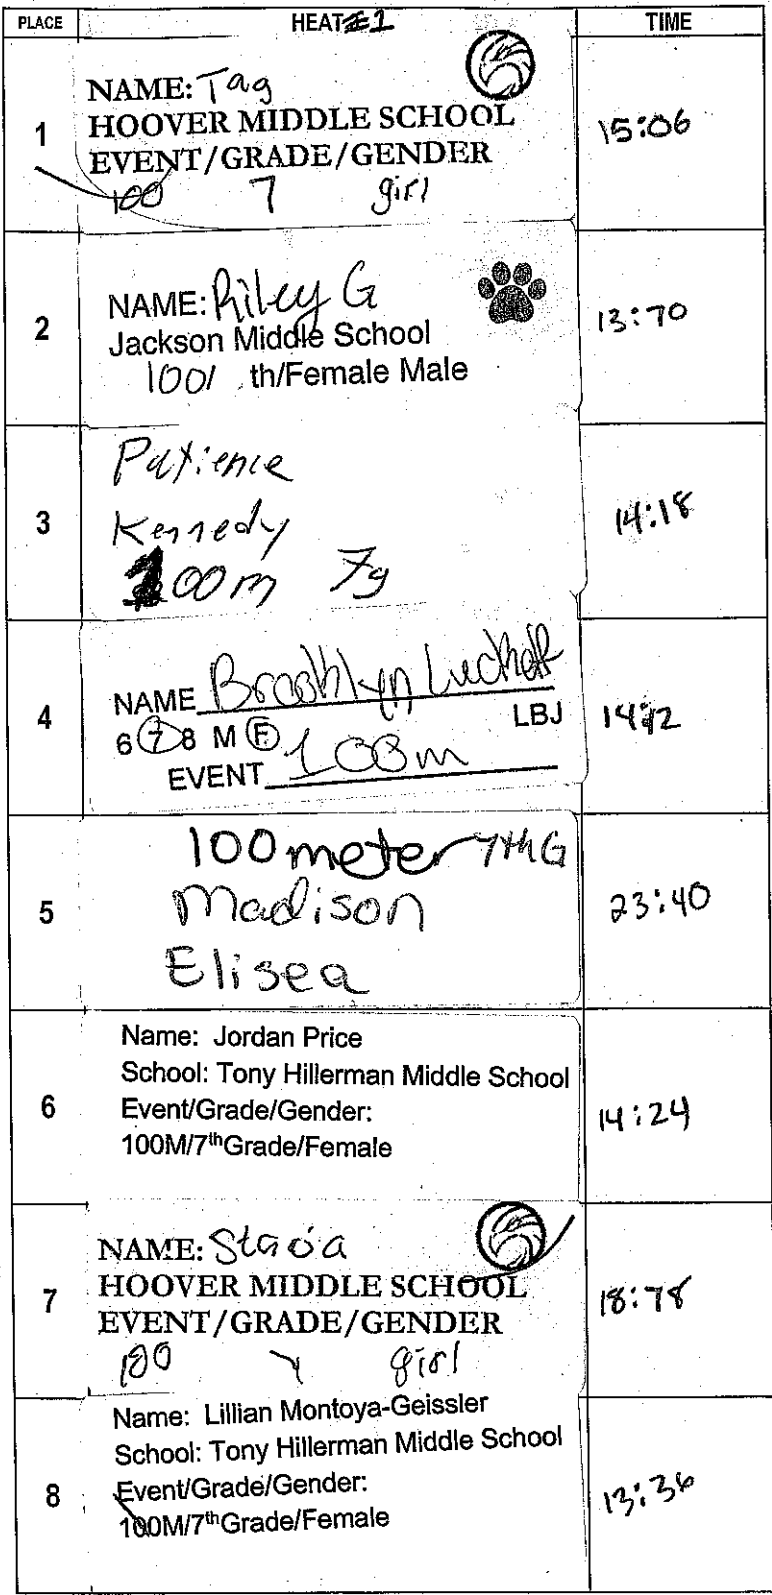 PLACE HEAT #1 TIME
1 NAME: Tag
HOOVER MIDDLE SCHOOL
EVENT/GRADE/GENDER
100 7 girl
15:06
2 NAME: Riley G
Jackson Middle School
100/ th/Female Male
13:70
3 Patience
Kennedy
100m 7g
14:18
4 NAME Brooklyn
6 7 8 M F LBJ
EVENT 100m
5 100 meter 7th G
Madison
Elisea
23:40
6 Name: Jordan Price
School: Tony Hillerman Middle School
Event/Grade/Gender:
100M/7thGrade/Female
14:24
7 NAME:
HOOVER MIDDLE SCHOOL
EVENT/GRADE/GENDER
100 7 girl
18:78
8 Name: Lillian Montoya-Geissler
School: Tony Hillerman Middle School
Event/Grade/Gender:
100M/7thGrade/Female
13:36